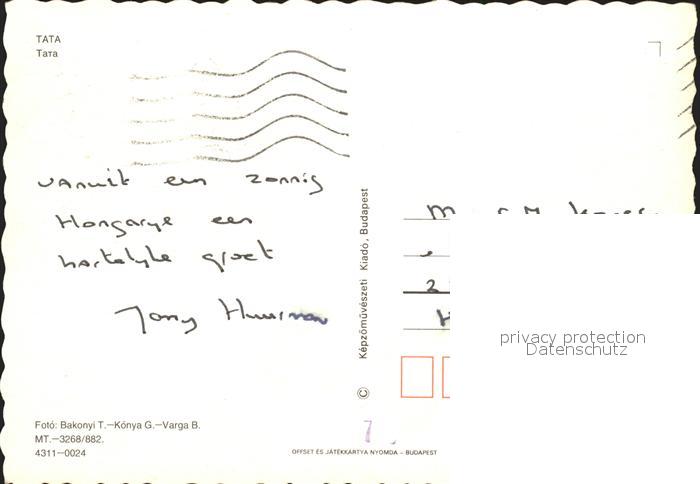 TATA
Тата
vanuit een zonnig
Hongarye een
hartelyke groet
Tony
Képzőművészeti Kiadó, Budapest
©
M
2
privacy protection
Datenschutz
7
Fotó: Bakonyi T.—Kónya G.—Varga B.
MT.—3268/882.
4311—0024
OFFSET ÉS JÁTÉKKÁRTYA NYOMDA – BUDAPEST